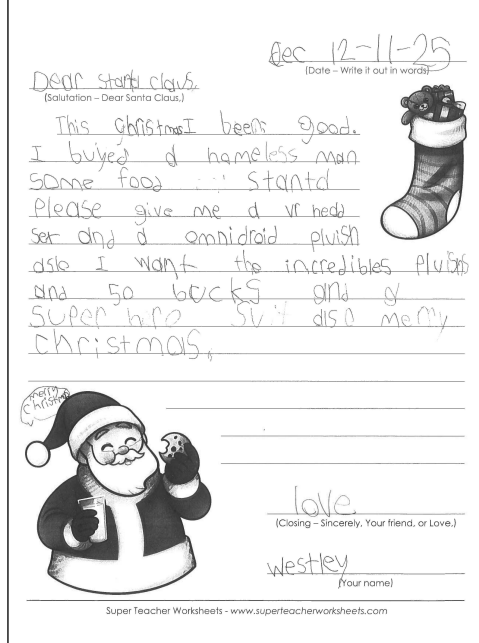 Dec 12-11-25
(Date – Write it out in words)
Dear stantd claus,
(Salutation – Dear Santa Claus,)
This christmas I been good.
I buyed a homeless man
some food stantd
Please give me a vr hedd
set and a omnidroid pluish
aslo I want the incredibles Pluishs
and 50 bucks and a
super hero suit also merry
christmas,
merry
christmas
love
(Closing – Sincerely, Your friend, or Love,)
westley
(Your name)
Super Teacher Worksheets - www.superteacherworksheets.com